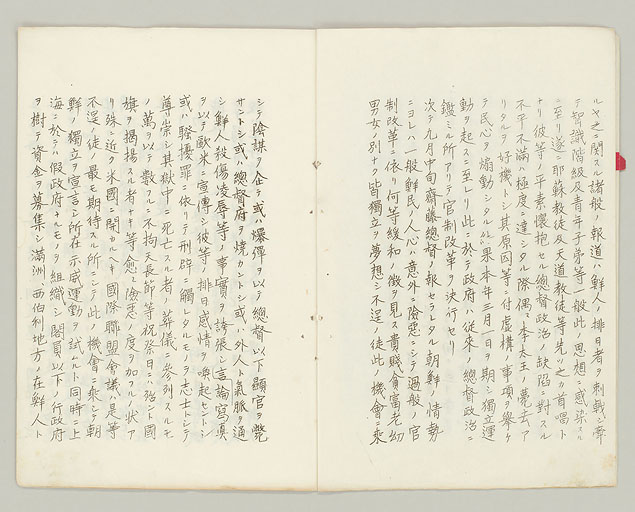 ルヤ之ニ関スル諸般ノ報道ハ鮮人ノ排日者ヲ刺戟シ牽
テ智識階級及青年子弟等一般此ノ思想ニ感染スル
ニ至リ遂ニ耶蘇教徒及天道教徒等先ツ之カ首唱ト
ナリ彼等ノ平素懐抱セル総督政治ノ缺陷ニ對スル
不平不滿ハ極度ニ達シタル際偶ニ李太王ノ薨去ア
リタルヲ好機トシ其原因等ニ付虚構ノ事項ヲ擧ケ
テ民心ヲ煽動シタル 果本年三月一日ヲ期シ獨立運
動ヲ起スニ至レリ此ニ於テ政府ハ従来ノ総督政治ニ
鑑ミル所アリテ官制改革ヲ決行セリ
次テ九月中旬齋藤總督ノ報セラレタル朝鮮ノ情勢
ニヨレハ一般鮮民ノ人心ハ意外ニ險惡ニシテ過般ノ官
制改革ニ依リ何等緩和ノ徴ヲ見ス貴賤貧富老幼
男女ノ別ナク皆獨立ヲ夢想シ不逞ノ徒此ノ機會ニ乗
シテ陰謀ヲ企テ或ハ爆彈ヲ以テ総督以下顯官ヲ斃
サントシ或ハ總督府ヲ焼カントシ或ハ外人ト氣脈ヲ通
シ鮮人殺傷凌辱等ノ事實ヲ誇張シ言論寫真
ヲ以テ歐米ニ宣傳シ彼等ノ排日感情ヲ喚起セントシ
或ハ騒擾罪ニ依リテ刑辟ニ觸レタルモノヲ志士トシテ
尊崇シ其獄中ニ死亡スル者ノ葬儀ニ参列スルモ
ノ萬ヲ以テ數フルニ不拘天長節等祝祭日ニハ殆ント國
旗ヲ掲揚スル者ナキ等愈々險惡ノ度ヲ加フルノ状ア
リ殊ニ近ク米國ニ開カルヘキ國際聯盟會議ハ是等
不逞ノ徒ノ最モ期待スル所ニシテ此ノ機會ニ乗シテ朝
鮮ノ獨立ヲ宣言シ所在示威運動ヲ試ミルト同時ニ上
海ニ於テハ假政府ナルモノヲ組織シ閣員以下ノ行政府
ヲ樹テ資金ヲ募集シ満洲、西伯利地方ノ在鮮人ト